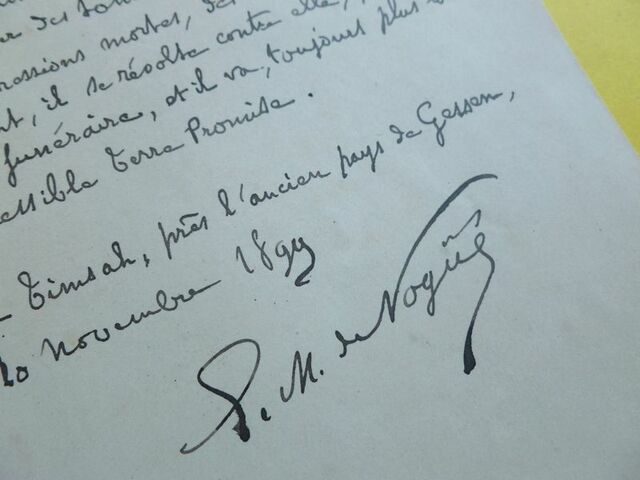 ressions mortes, des
nt, il se révolte contre elle,
funéraire, et il va, toujours plus
essible Terre Promise.
Timsah, près l'ancien pays de Gessen,
20 novembre 1899
E. M. de Vogüé